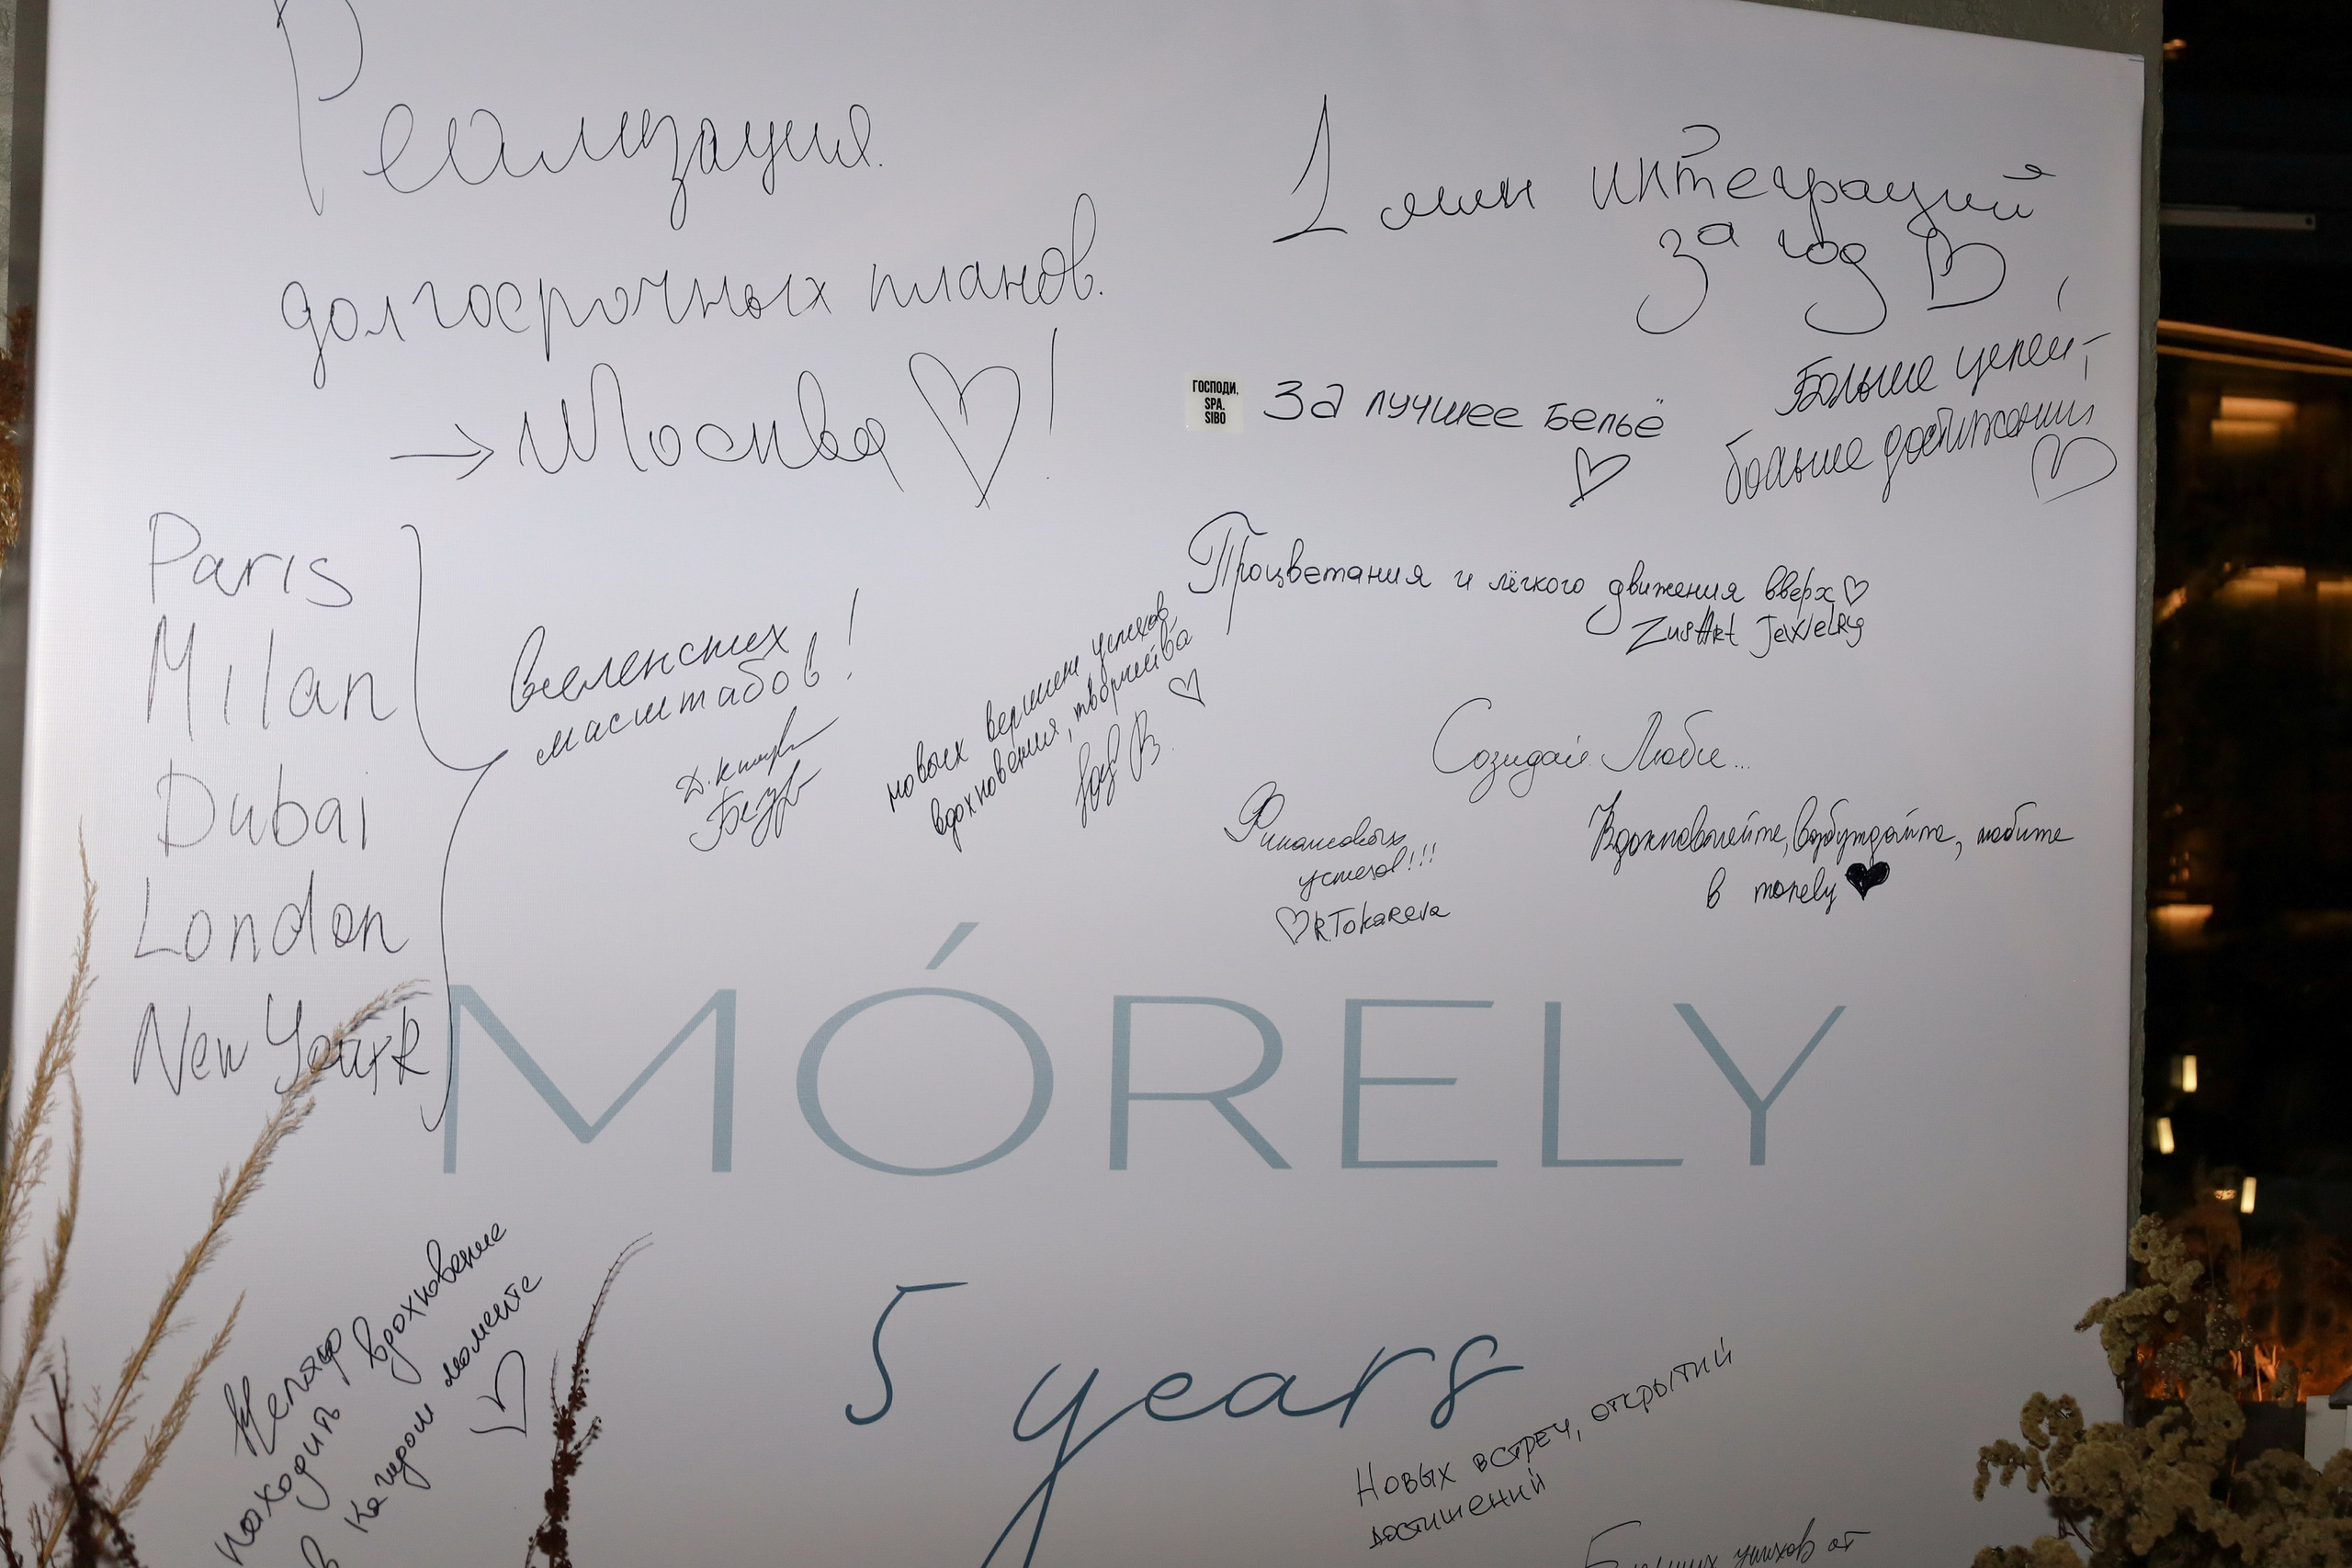 Реализация.
долгосрочных планов.
→ Москва ♡!
Paris
Milan
Dubai
London
New York
вселенских
масштабов!
1 млн интеграций
за год ♡
ГОСПОДИ,
SPA.
SIBO
За лучшее бельё
♡
Больше целей,
больше достижений
♡
Процветания и лёгкого движения вверх ♡
ZusArt Jewelry
новых вершин успехов
вдохновения, творчества
♡
Созидай. Люби...
Финансовых
успехов!!!
♡ R.Tokareva
Вдохновляйте, возбуждайте, любите
в morely ♥
MÓRELY
5 years
Желаю
находить вдохновение
в каждом моменте
♡
Новых встреч, открытий
достижений
успехов от